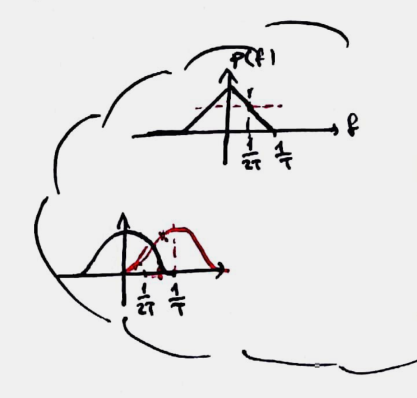 P(f)
f
1/2T 1/T
1/2T 1/T